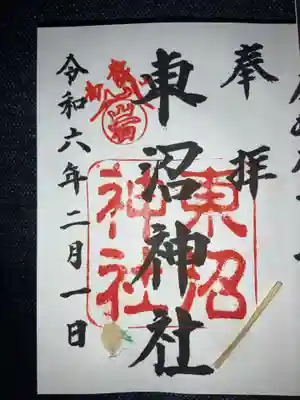 奉拝
東沼神社
令和六年二月一日
東沼
神社